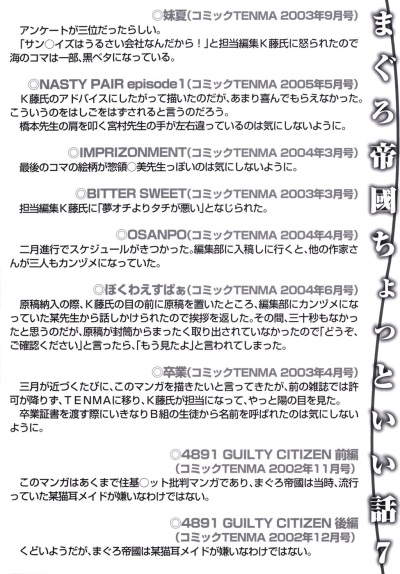 まぐろ帝國ちょっといい話7
◎妹夏(コミックTENMA 2003年9月号)
アンケートが三位だったらしい。
「サン○イズはうるさい会社なんだから！」と担当編集K藤氏に怒られたので
海のコマは一部、黒ベタになっている。
◎NASTY PAIR episode1(コミックTENMA 2005年5月号)
K藤氏のアドバイスにしたがって描いたのだが、あまり喜んでもらえなかった。
こういうのをはしごをはずされると言うのだろう。
橋本先生の肩を叩く宮村先生の手が左右違っているのは気にしないように。
◎IMPRIZONMENT(コミックTENMA 2004年3月号)
最後のコマの絵柄が惣領○美先生っぽいのは気にしないように。
◎BITTER SWEET(コミックTENMA 2003年3月号)
担当編集K藤氏に「夢オチよりタチが悪い」となじられた。
◎OSANPO(コミックTENMA 2004年4月号)
二月進行でスケジュールがきつかった。編集部に入稿しに行くと、他の作家さ
んが三人もカンヅメになっていた。
◎ぼくわえすぱぁ(コミックTENMA 2004年6月号)
原稿納入の際、K藤氏の目の前に原稿を置いたところ、編集部にカンヅメにな
っていた某先生から話しかけられたので挨拶を返した。その間、三十秒もなかっ
たと思うのだが、原稿が封筒からまったく取り出されていなかったので「どうぞ、
ご確認ください」と言ったら、「もう見たよ」と言われてしまった。
◎卒業(コミックTENMA 2003年4月号)
三月が近づくたびに、このマンガを描きたいと言ってきたが、前の雑誌では許
可が降りず、TENMAに移り、K藤氏が担当になって、やっと陽の目を見た。
卒業証書を渡す際にいきなりB組の生徒から名前を呼ばれたのは気にしない
ように。
◎4891 GUILTY CITIZEN 前編
(コミックTENMA 2002年11月号)
このマンガはあくまで住基○ット批判マンガであり、まぐろ帝國は当時、流行
っていた某猫耳メイドが嫌いなわけではない。
◎4891 GUILTY CITIZEN 後編
(コミックTENMA 2002年12月号)
くどいようだが、まぐろ帝國は某猫耳メイドが嫌いなわけではない。